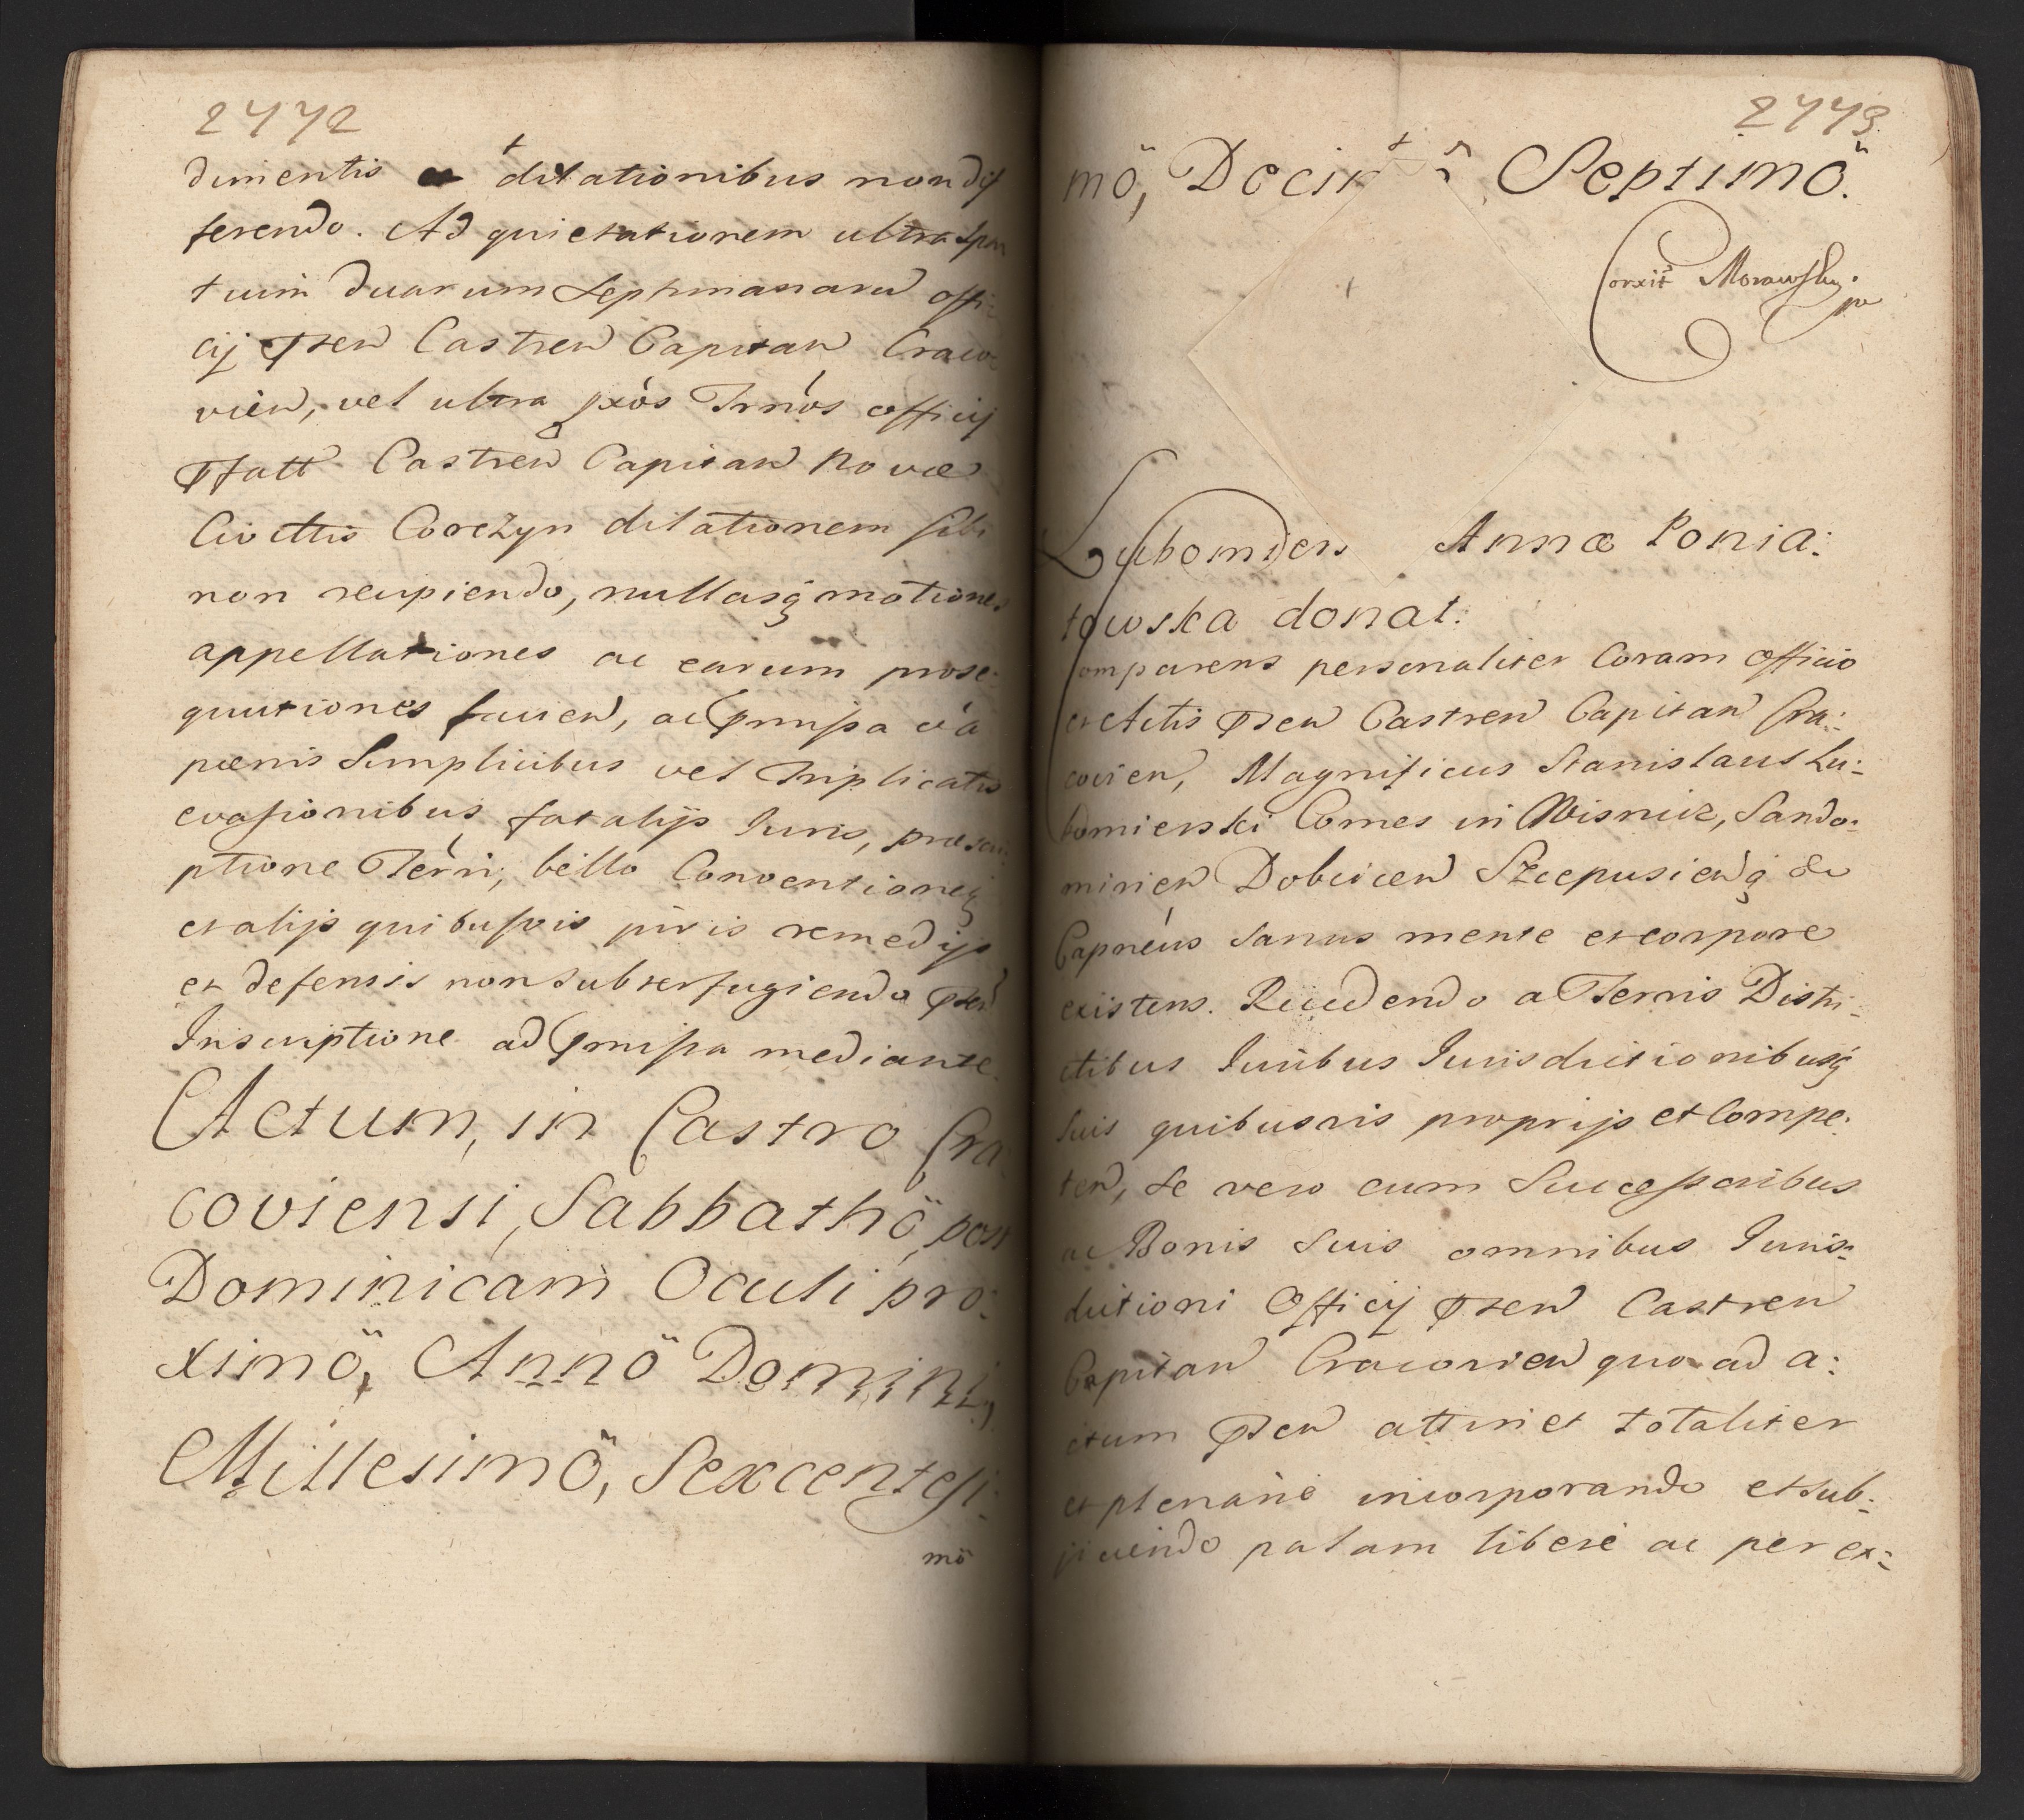 2472
dimentis et dilationibus non dif
ferendo. Ad quietationem ultra spa
tium duarum septimanarũ offi:
cij pñteñ Castreñ Capitañ Craco
vieñ, vel ultra pxõs Trnõs officij
pfatt Castreñ Capitañ Novæ
Civttis Corczyn dilationem sibi
non recipiendo, nullasq motiones
appellationes ac earum prose:
quutiones facieñ, ac pmissa oĩa
pœnis simplicibus vel triplicatis
evasionibus, fatalijs Iuris, præscri
ptione Terri, bello Conventioneq
et alijs quibusvis juris remedijs
et defensis non subterfugiendo pñteñ
Inscriptione ad pmissa mediante.
Actum, in Castro Cra
coviensi, Sabbathö, post
Dominicam Oculi pro:
ximö, Annö Domini,
Millesimö, Sexcentesi:
mö
2473.
mö, Decim Septimö.
Corxit Morawsky. pp
Lubomiers Annæ Ponia:
towska donat:
Comparens personaliter Coram Officio
et Actis pñteñ Castreñ Capitañ Cra:
covieñ, Magnificus Stanislaus Lu:
bomierski Comes in Wisnicz, Sando:
mirieñ Dobciceñ Szcepusieñq &c
Capneus sanus mente et corpore
existens. Recedendo a Terris Distri:
ctibus Iuribus Iurisdictionibusq
suis quibusvis proprijs et Compe:
teñ, se vero cum Successoribus
ac Bonis suis omnibus Iuris:
dictioni Officij pñteñ Castreñ
Capitañ Cracovieñ quo ad a:
ctum pñteñ attinet totaliter
et plenariè incorporando et sub:
jiciendo palam liberè ac per ex: